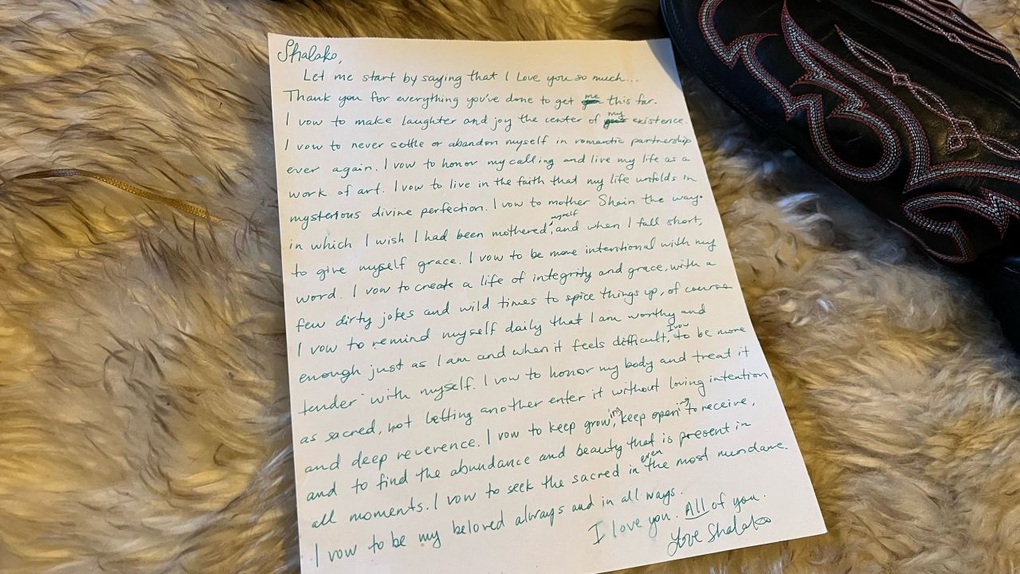 Shalako,
Let me start by saying that I Love you so much...
Thank you for everything you've done to get me this far.
I vow to make laughter and joy the center of my existence.
I vow to never settle or abandon myself in romantic partnership
ever again. I vow to honor my calling and live my life as a
work of art. I vow to live in the faith that my life unfolds in
mysterious divine perfection. I vow to mother Shain the ways
in which I wish I had been mothered myself, and when I fall short,
to give myself grace. I vow to be more intentional with my
word. I vow to create a life of integrity and grace, with a
few dirty jokes and wild times to spice things up, of course
I vow to remind myself daily that I am worthy and
enough just as I am and when it feels difficult, I vow to be more
tender with myself. I vow to honor my body and treat it
as sacred, not letting another enter it without loving intention
and deep reverence. I vow to keep growing, keep opening to receive,
and to find the abundance and beauty that is present in
all moments. I vow to seek the sacred in even the most mundane.
I vow to be my beloved always and in all ways.
I love you. All of you.
Love Shalako